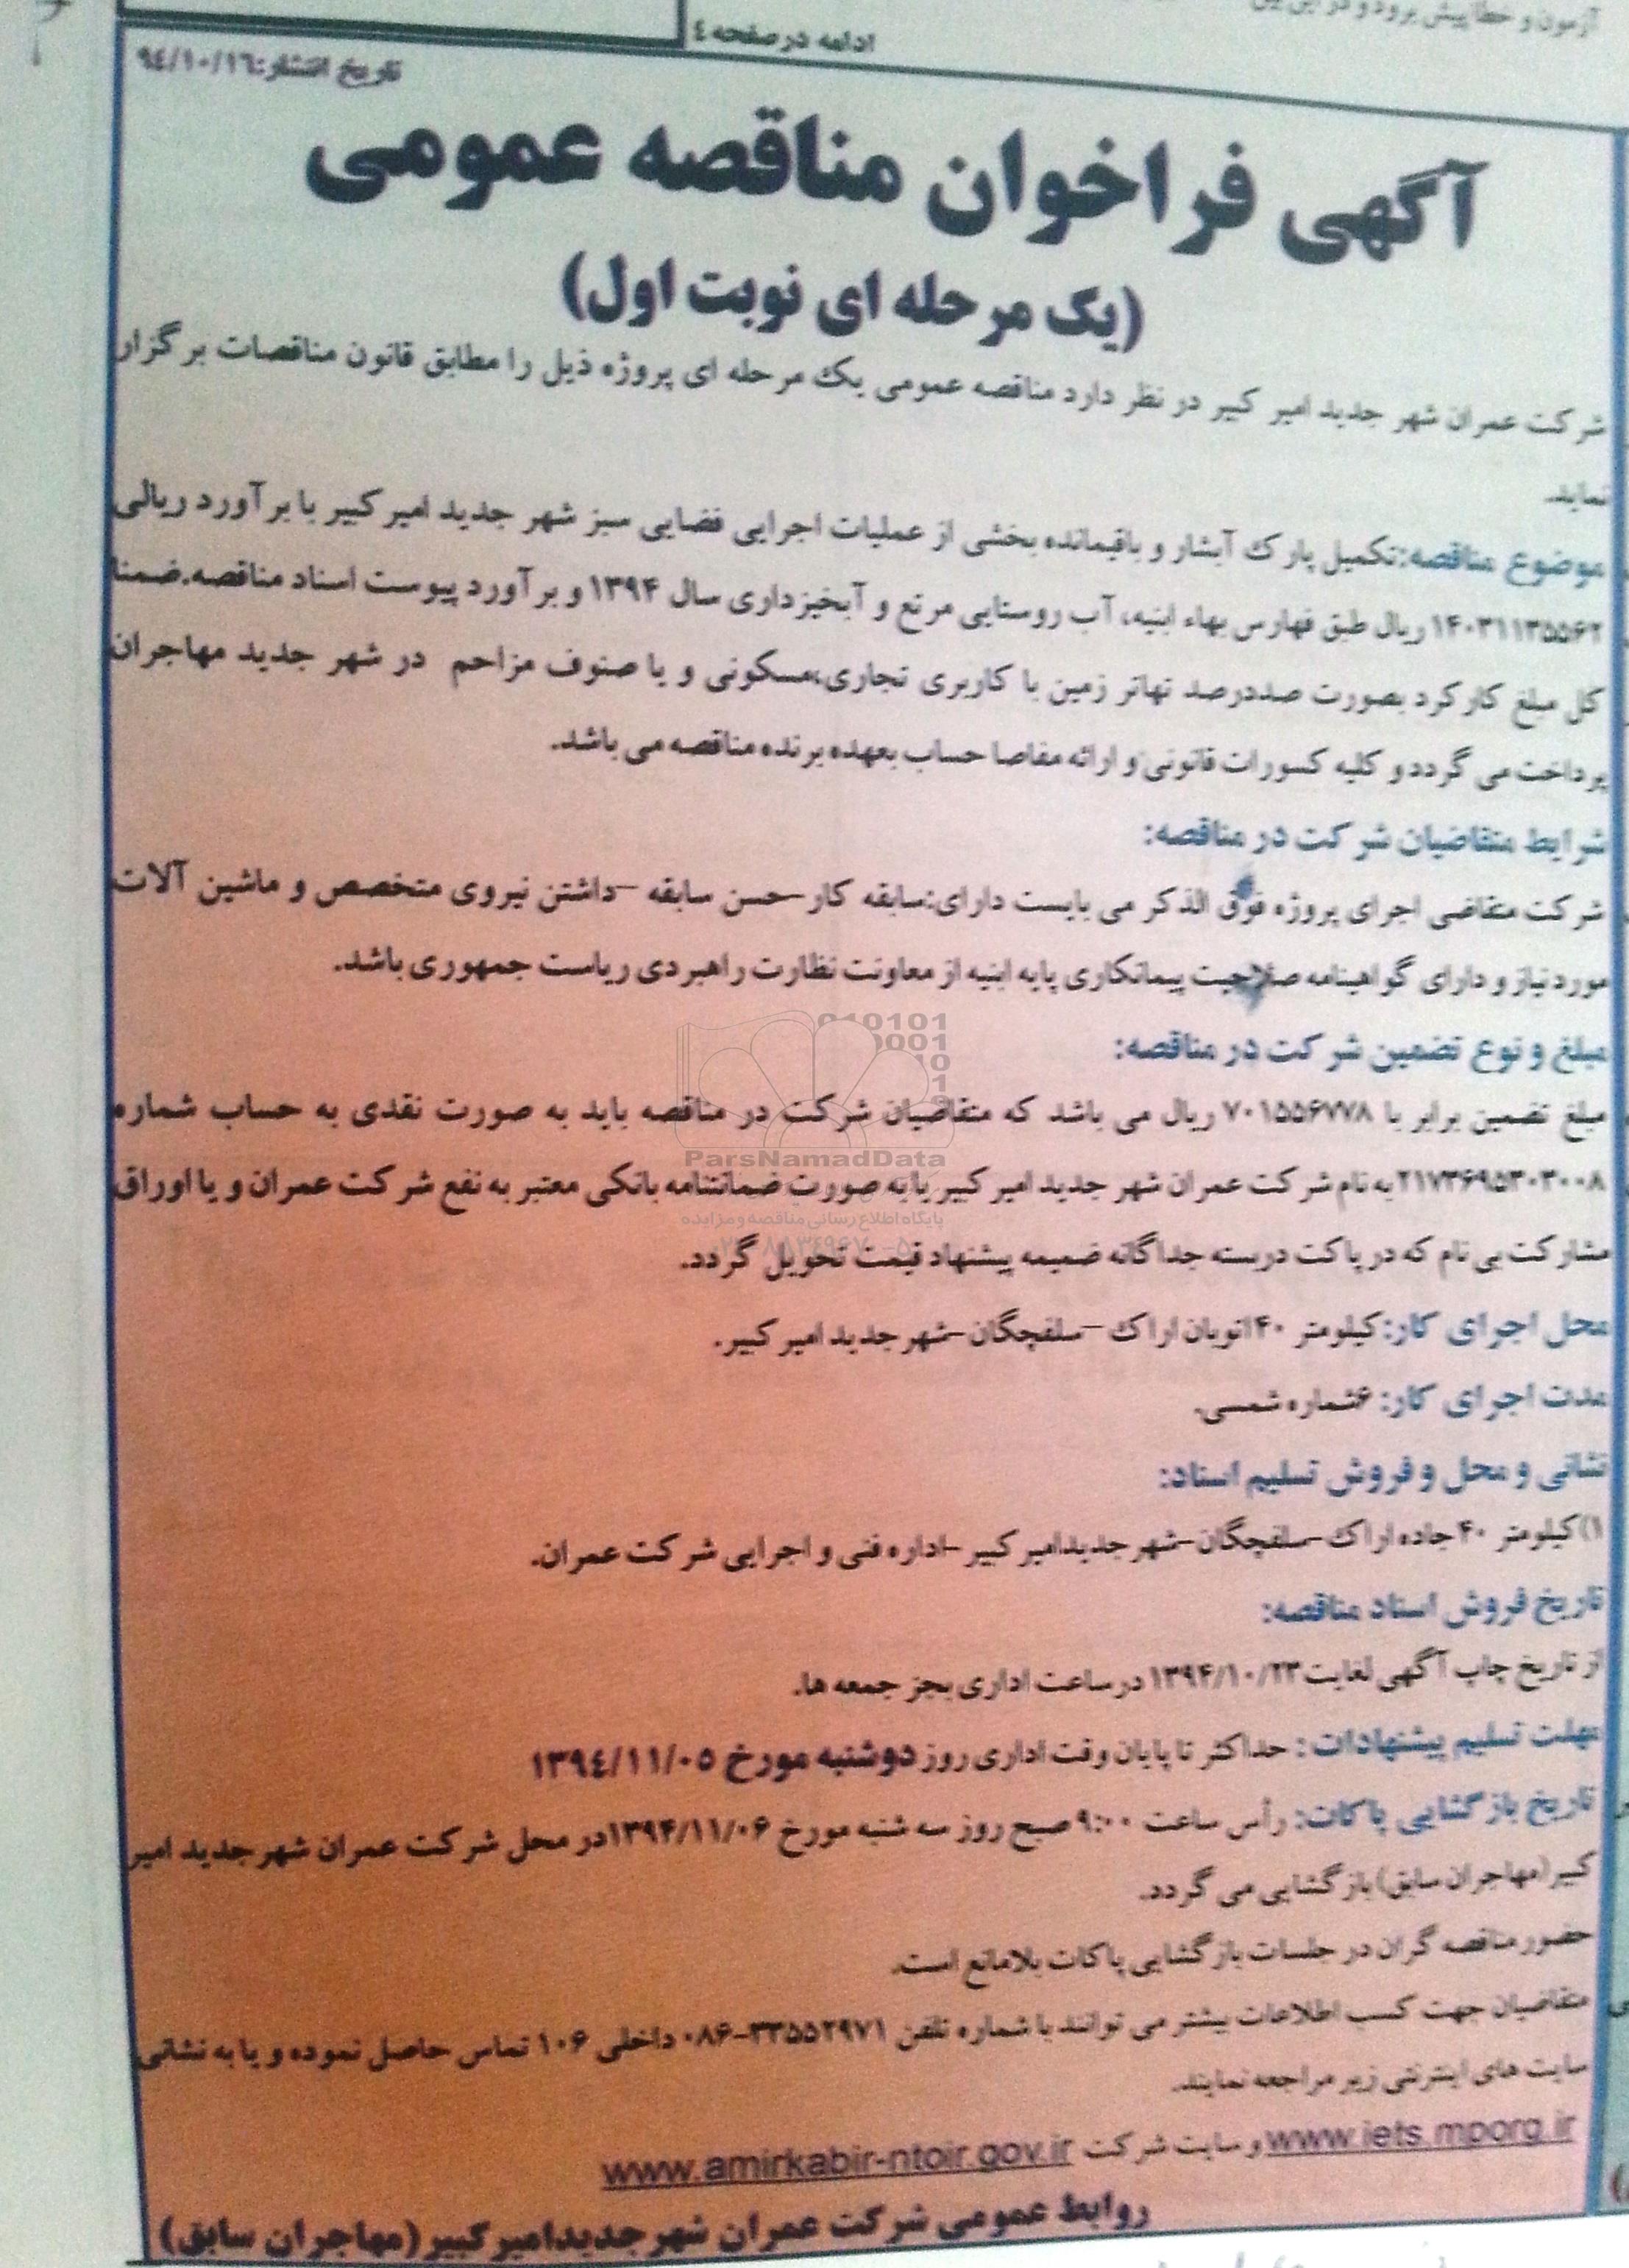 آزمون و خطا پیش برود و در این بین
ادامه در صفحه ٤
تاریخ انتشار:٩٤/١٠/١٦
آگهی فراخوان مناقصه عمومی
(یک مرحله ای نوبت اول)
شرکت عمران شهر جدید امیر کبیر در نظر دارد مناقصه عمومی یک مرحله ای پروژه ذیل را مطابق قانون مناقصات برگزار
نماید.
موضوع مناقصه:تکمیل پارک آبشار و باقیمانده بخشی از عملیات اجرایی فضایی سبز شهر جدید امیرکبیر با برآورد ریالی
۱۴۰۳۱۱۳۵۵۶۲ ریال طبق فهارس بهاء ابنیه، آب روستایی مرتع و آبخیزداری سال ۱۳۹۴ و برآورد پیوست اسناد مناقصه.ضمنا
کل مبلغ کارکرد بصورت صددرصد تهاتر زمین با کاربری تجاری،مسکونی و یا صنوف مزاحم در شهر جدید مهاجران
پرداخت می گردد و کلیه کسورات قانونی و ارائه مفاصا حساب بعهده برنده مناقصه می باشد.
شرایط متقاضیان شرکت در مناقصه:
شرکت متقاضی اجرای پروژه فوق الذکر می بایست دارای:سابقه کار-حسن سابقه -داشتن نیروی متخصص و ماشین آلات
مورد نیاز و دارای گواهینامه صلاحیت پیمانکاری پایه ابنیه از معاونت نظارت راهبردی ریاست جمهوری باشد.
مبلغ و نوع تضمین شرکت در مناقصه:
مبلغ تضمین برابر با ۷۰۱۵۵۶۷۷۸ ریال می باشد که متقاضیان شرکت در مناقصه باید به صورت نقدی به حساب شماره
۲۱۷۳۶۹۵۳۰۳۰۰۸ به نام شرکت عمران شهر جدید امیر کبیر یا به صورت ضمانتنامه بانکی معتبر به نفع شرکت عمران و یا اوراق
مشارکت بی نام که در پاکت دربسته جداگانه ضمیمه پیشنهاد قیمت تحویل گردد.
محل اجرای کار:کیلومتر ۴۰ اتوبان اراک -سلفچگان-شهر جدید امیر کبیر.
مدت اجرای کار: ۶شماره شمسی.
نشانی و محل و فروش تسلیم اسناد:
۱)کیلومتر ۴۰ جاده اراک-سلفچگان-شهر جدیدامیر کبیر -اداره فنی و اجرایی شرکت عمران.
تاریخ فروش اسناد مناقصه:
از تاریخ چاپ آگهی لغایت ۱۳۹۴/۱۰/۲۳ در ساعت اداری بجز جمعه ها.
مهلت تسلیم پیشنهادات: حداکثر تا پایان وقت اداری روز دوشنبه مورخ ١٣٩٤/١١/٠٥
تاریخ بازگشایی پاکات: رأس ساعت ۹:۰۰ صبح روز سه شنبه مورخ ۱۳۹۴/۱۱/۰۶در محل شرکت عمران شهر جدید امیر
کبیر(مهاجران سابق)بازگشایی می گردد.
حضور مناقصه گران در جلسات بازگشایی پاکات بلامانع است.
متقاضیان جهت کسب اطلاعات بیشتر می توانند با شماره تلفن ۳۳۵۵۲۹۷۱-۰۸۶ داخلی ۱۰۶ تماس حاصل نموده و یا به نشانی
سایت های اینترنتی زیر مراجعه نمایند.
www.iets.mporg.ir و سایت شرکت www.amirkabir-ntoir.gov.ir
روابط عمومی شرکت عمران شهر جدیدامیرکبیر(مهاجران سابق)
ParsNamadData
پایگاه اطلاع رسانی مناقصه و مزایده